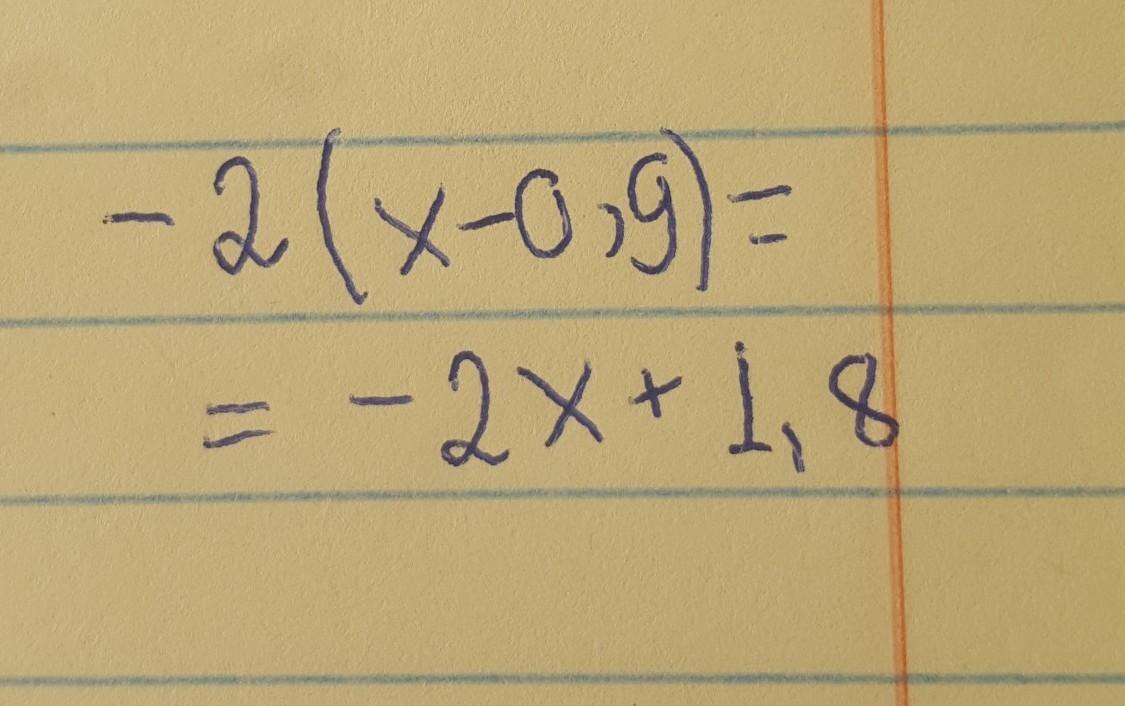 -2(x-0,9)=
= -2x+1,8